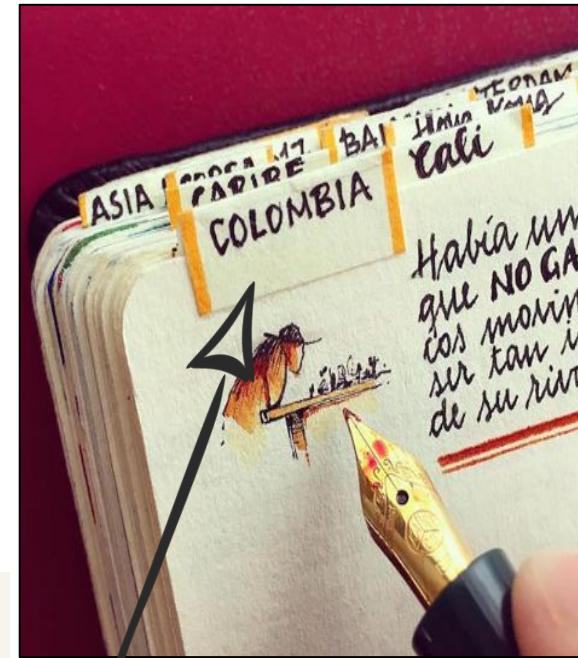 ASIA
CARIBE
BA
Cali
COLOMBIA
Había un
que NO GA
cos movim
ser tan i
de su riv